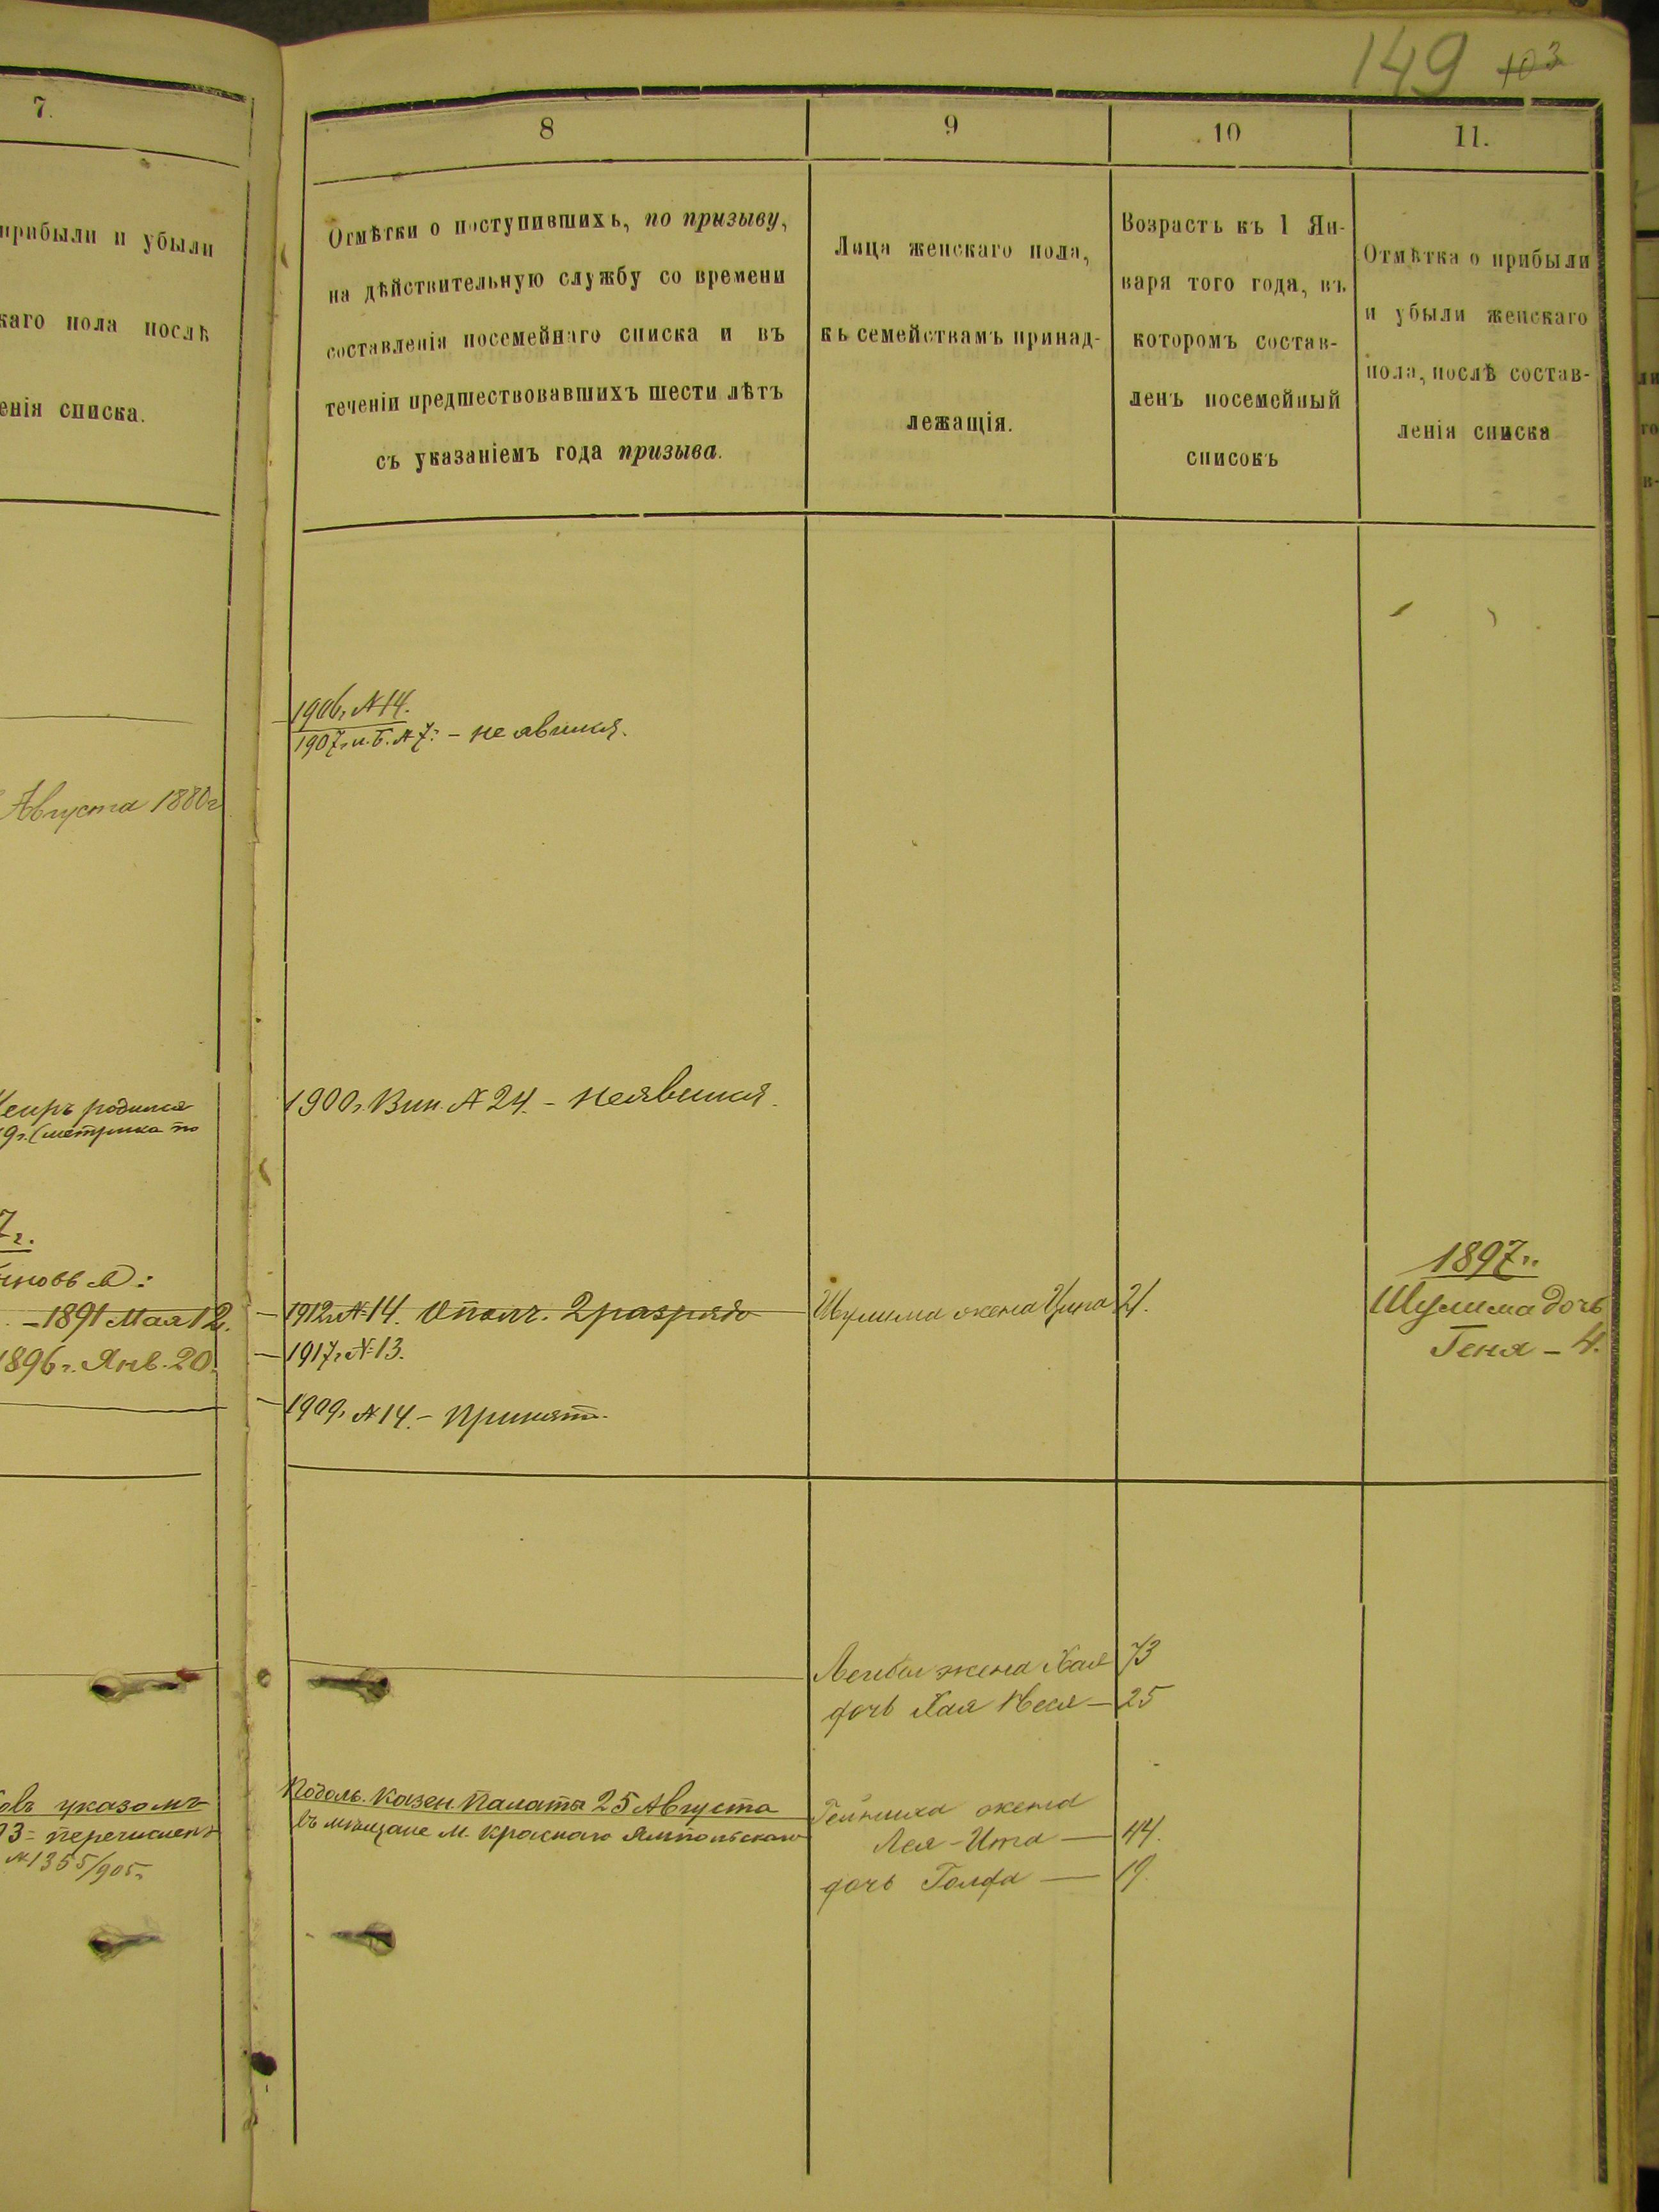 149 103
7.
прибыли и убыли
каго пола послѣ
енія списка.
Августа 1880г
Меиръ родился
9г. (метрика по
7г.
1891 Мая 12.
1896г. Янв. 20.
указомъ
93 перечисленъ
№1355/905г.
8
Отмѣтки о поступившихъ, по призыву,
на дѣйствительную службу со времени
составленія посемейнаго списка и въ
теченіи предшествовавшихъ шести лѣтъ
съ указаніемъ года призыва.
1906г. №14.
1907г. и.б. №7: – не явился.
1900г. Вин. №24. – Неявился.
1912г. №14. Ополч. 2 разряда
1917г. №13.
1909г. №14. – Принятъ.
Подоль. Казен. Палаты 25 Августа
въ мѣщане м. Краснаго Ямпольскаго
9
Лица женскаго пола,
къ семействамъ принад-
лежащія.
Шулима жена Цира
Лейбы жена Хая
дочь Хая Неся –
жена
Лея-Ита –
дочь Голда –
10
Возрастъ къ 1 Ян-
варя того года, въ
которомъ состав-
ленъ посемейный
списокъ
21.
73
25
44.
19.
11.
Отмѣтка о прибыли
и убыли женскаго
пола, послѣ состав-
ленія списка
1897г.
Шулима дочь
Геня – 4.